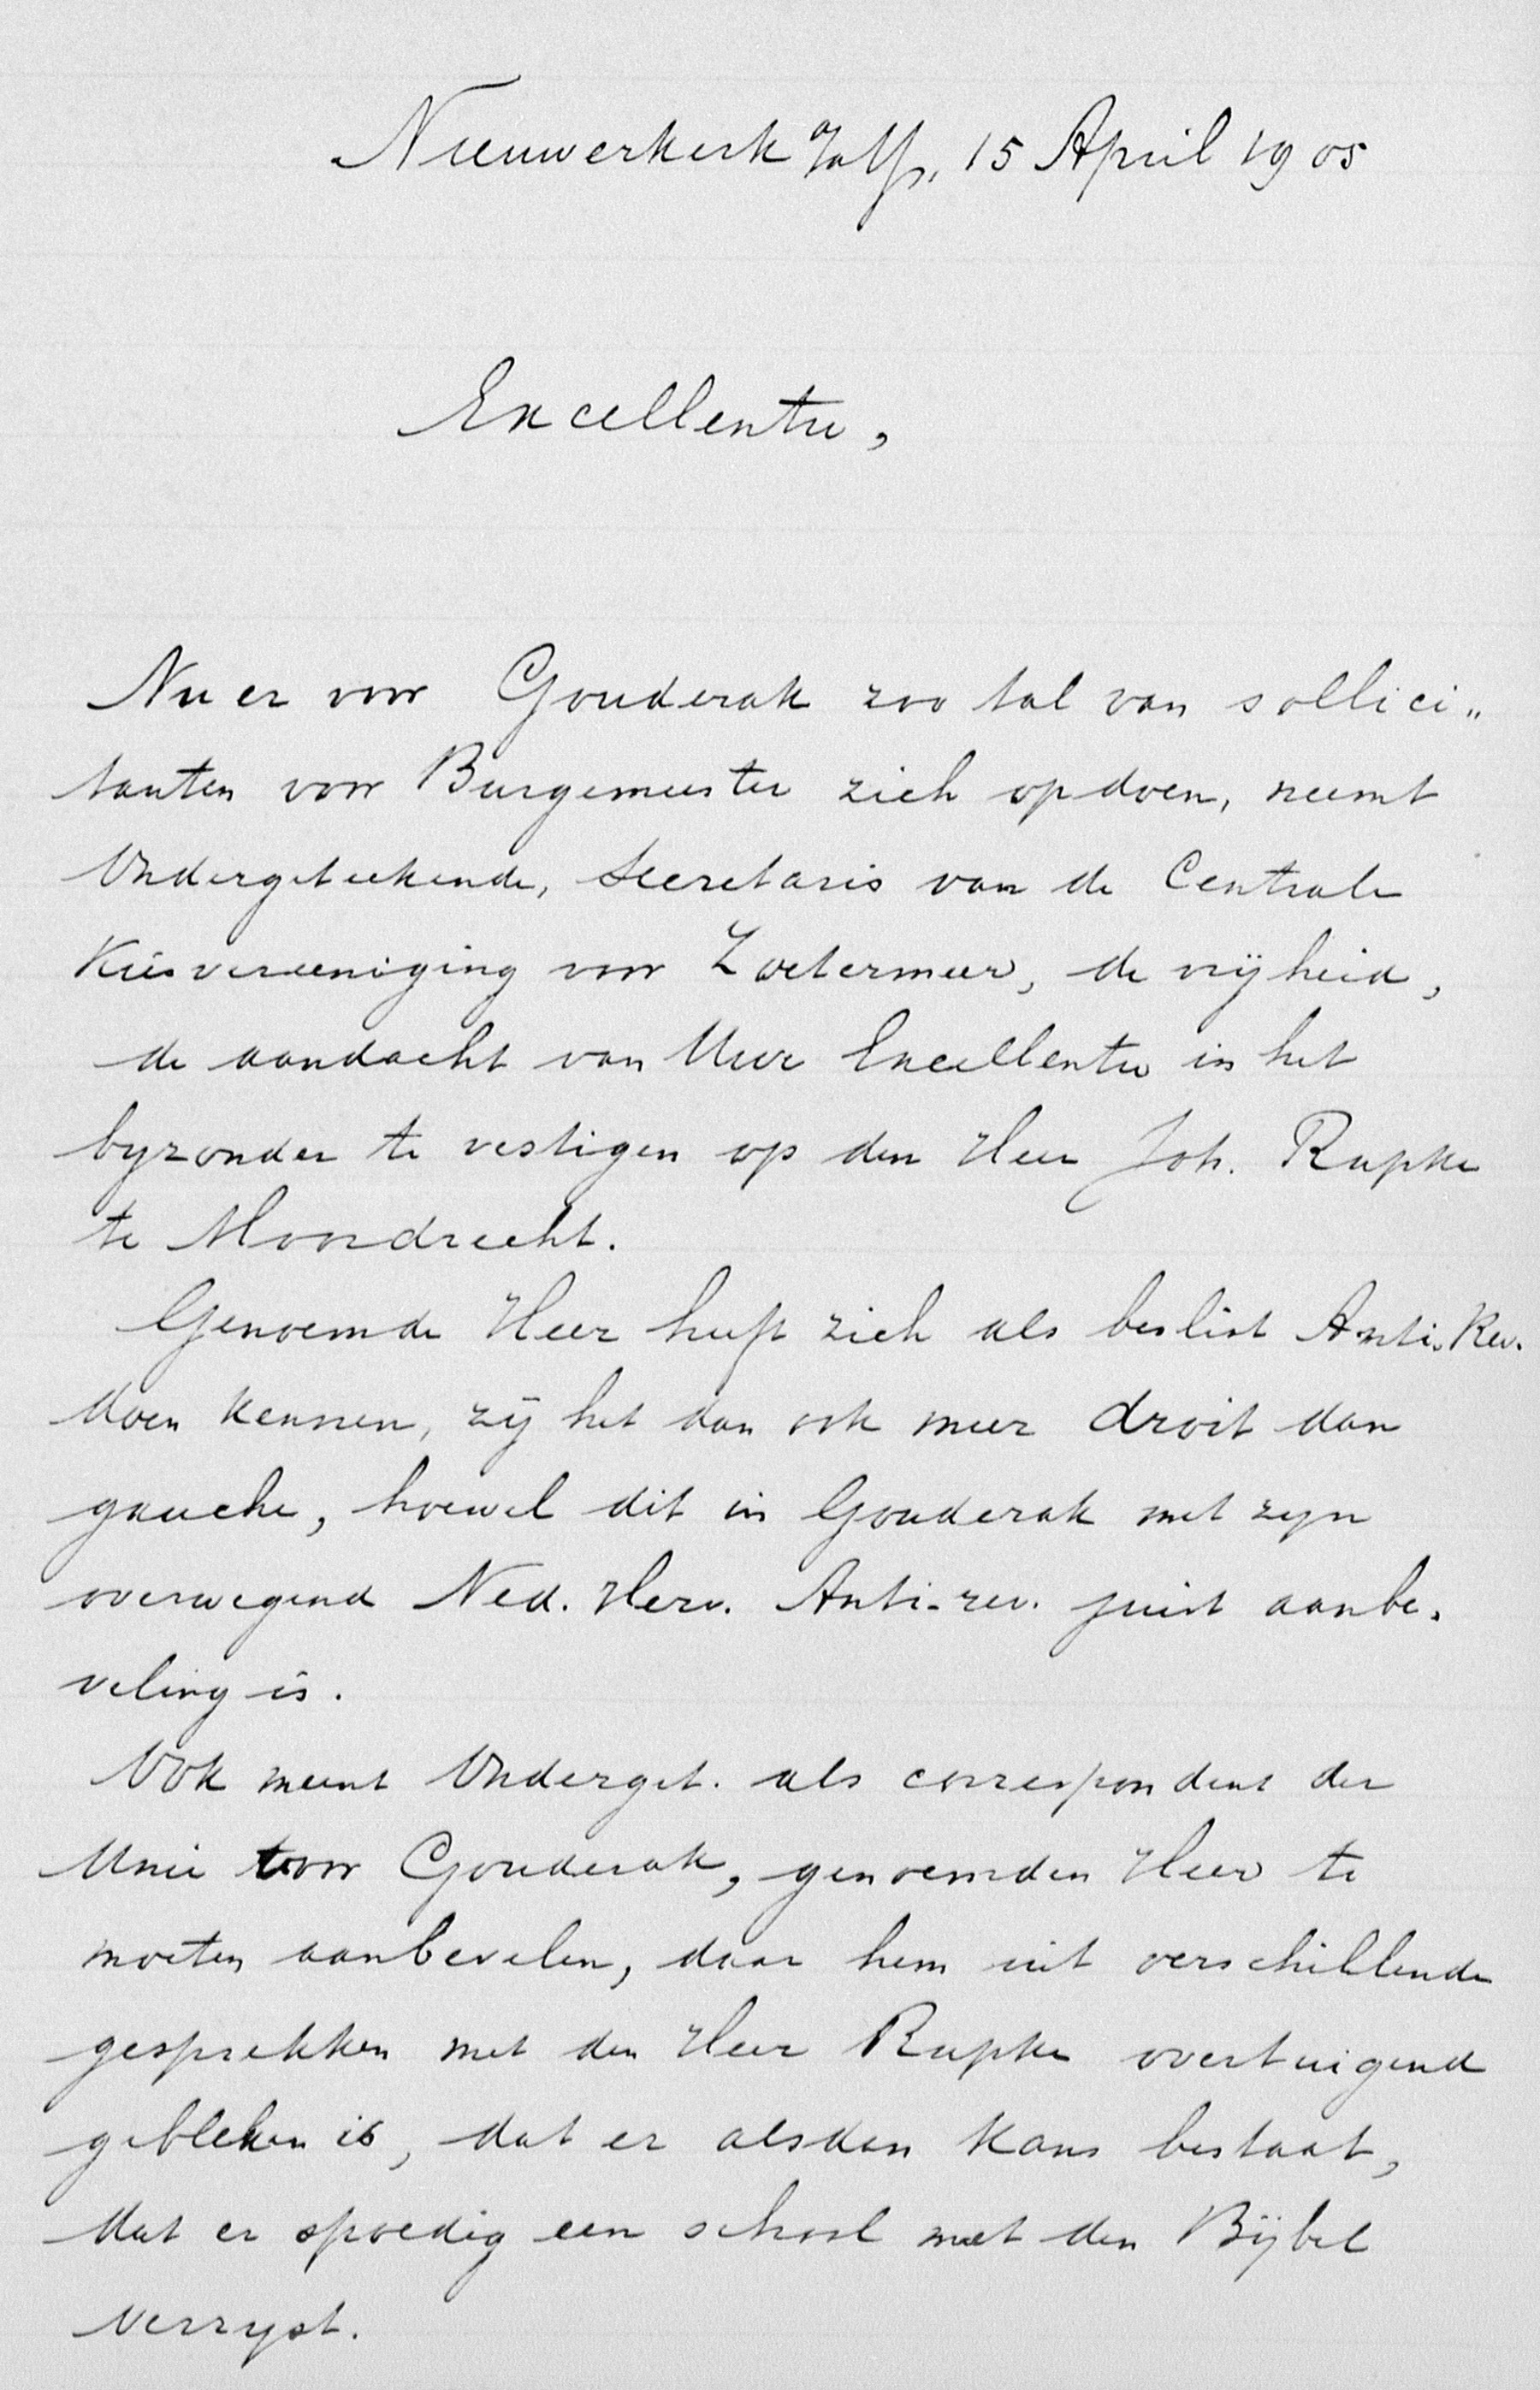 Nieuwerkerk a/d IJssel, 15 April 1905
Excellentie,
Nu er voor Gouderak zoo tal van sollici„
tanten voor Burgemeester zich opdoen, neemt
Ondergeteekende, Secretaris van de Centrale
Kiesvereeniging voor Zoetermeer, de vrijheid,
de aandacht van Uwe Excellentie in het
byzonder te vestigen op den Heer Joh. Rupke
te Moordrecht.
Genoemde Heer heeft zich als beslist Anti. Rev.
doen kennen, zij het dan ook meer droit dan
gauche, hoewel dit in Gouderak met zyn
overwegend Ned. Herv. Anti-rev. juist aanbe-
veling is.
Ook meent Onderget. als correspondent der
Unie voor Gouderak, genoemden Heer te
moeten aanbevelen, daar hem uit verschillende
gesprekken met den Heer Rupke overtuigend
gebleken is, dat er alsdan kans bestaat,
dat er spoedig een school met den Bijbel
verryst.